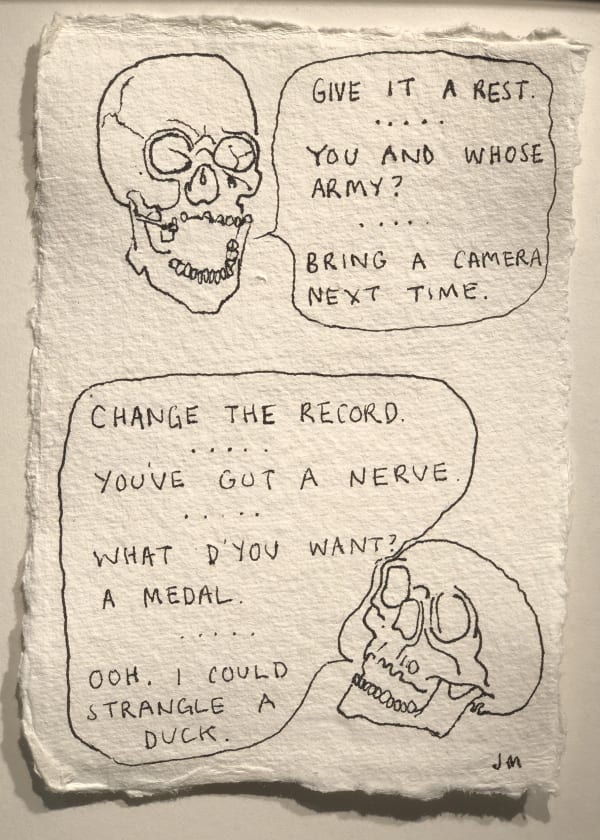 GIVE IT A REST.
.....
YOU AND WHOSE
ARMY?
.....
BRING A CAMERA
NEXT TIME.
CHANGE THE RECORD.
.....
YOU'VE GOT A NERVE.
.....
WHAT D'YOU WANT?
A MEDAL.
.....
OOH. I COULD
STRANGLE A
DUCK.
JM